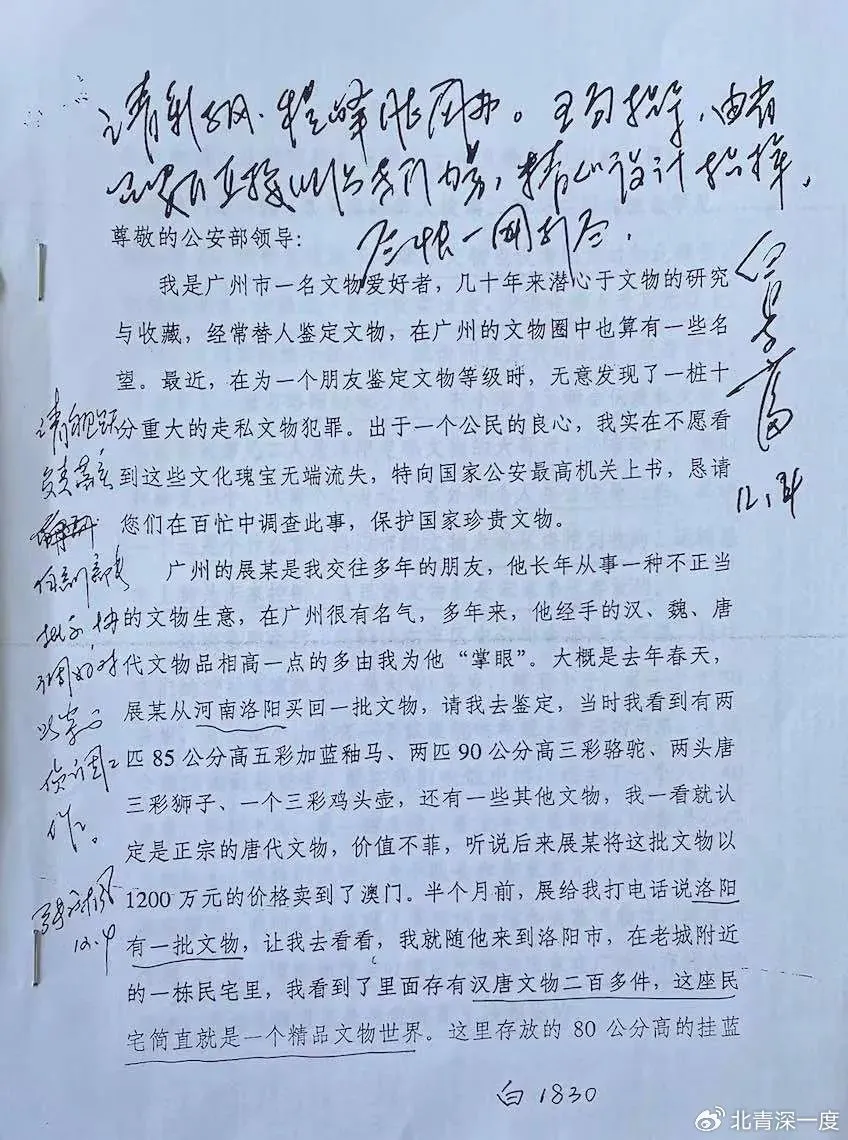 尊敬的公安部领导:
我是广州市一名文物爱好者,几十年来潜心于文物的研究
与收藏,经常替人鉴定文物,在广州的文物圈中也算有一些名
望。最近,在为一个朋友鉴定文物等级时,无意发现了一桩十
分重大的走私文物犯罪。出于一个公民的良心,我实在不愿看
到这些文化瑰宝无端流失,特向国家公安最高机关上书,恳请
您们在百忙中调查此事,保护国家珍贵文物。
广州的展某是我交往多年的朋友,他长年从事一种不正当
的文物生意,在广州很有名气,多年来,他经手的汉、魏、唐
代文物品相高一点的多由我为他“掌眼”。大概是去年春天,
展某从河南洛阳买回一批文物,请我去鉴定,当时我看到有两
匹 85 公分高五彩加蓝釉马、两匹 90 公分高三彩骆驼、两头唐
三彩狮子、一个三彩鸡头壶,还有一些其他文物,我一看就认
定是正宗的唐代文物,价值不菲,听说后来展某将这批文物以
1200 万元的价格卖到了澳门。半个月前,展给我打电话说洛阳
有一批文物,让我去看看,我就随他来到洛阳市,在老城附近
的一栋民宅里,我看到了里面存有汉唐文物二百多件,这座民
宅简直就是一个精品文物世界。这里存放的 80 公分高的挂蓝
精心设计指挥,
一网打尽.
12.4
作。
12.4
白 1830
北青深一度